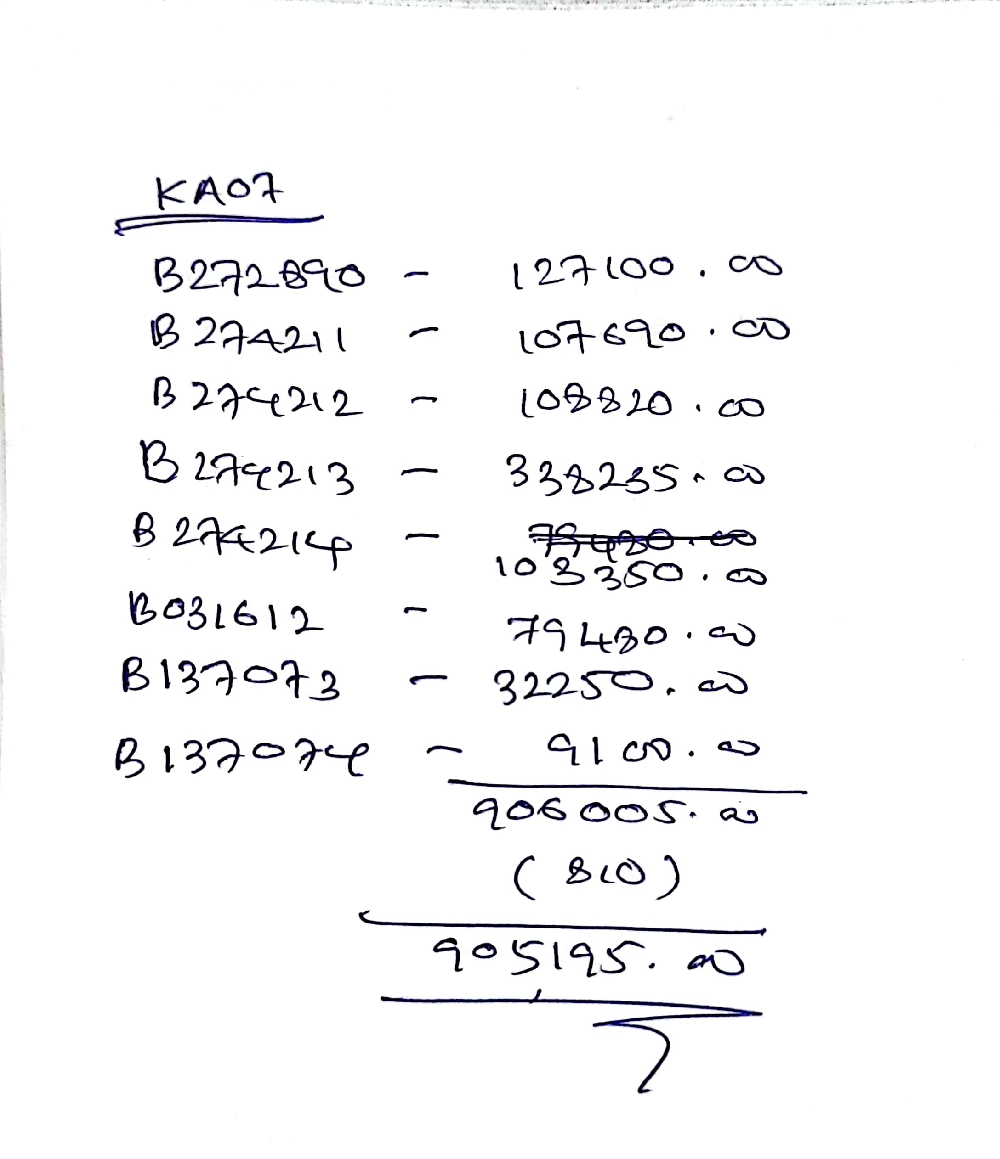 KA07
B272890 - 127100.00
B274211 - 107690.00
B274212 - 108820.00
B274213 - 338235.00
B274214 - 79480.00
103350.00
B031612 - 79480.00
B137073 - 32250.00
B137074 - 9100.00
906005.00
(810)
905195.00